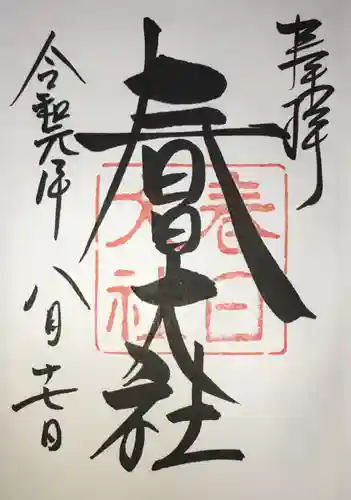 奉拝
春日大社
令和元年
八月十七日
春日
大社